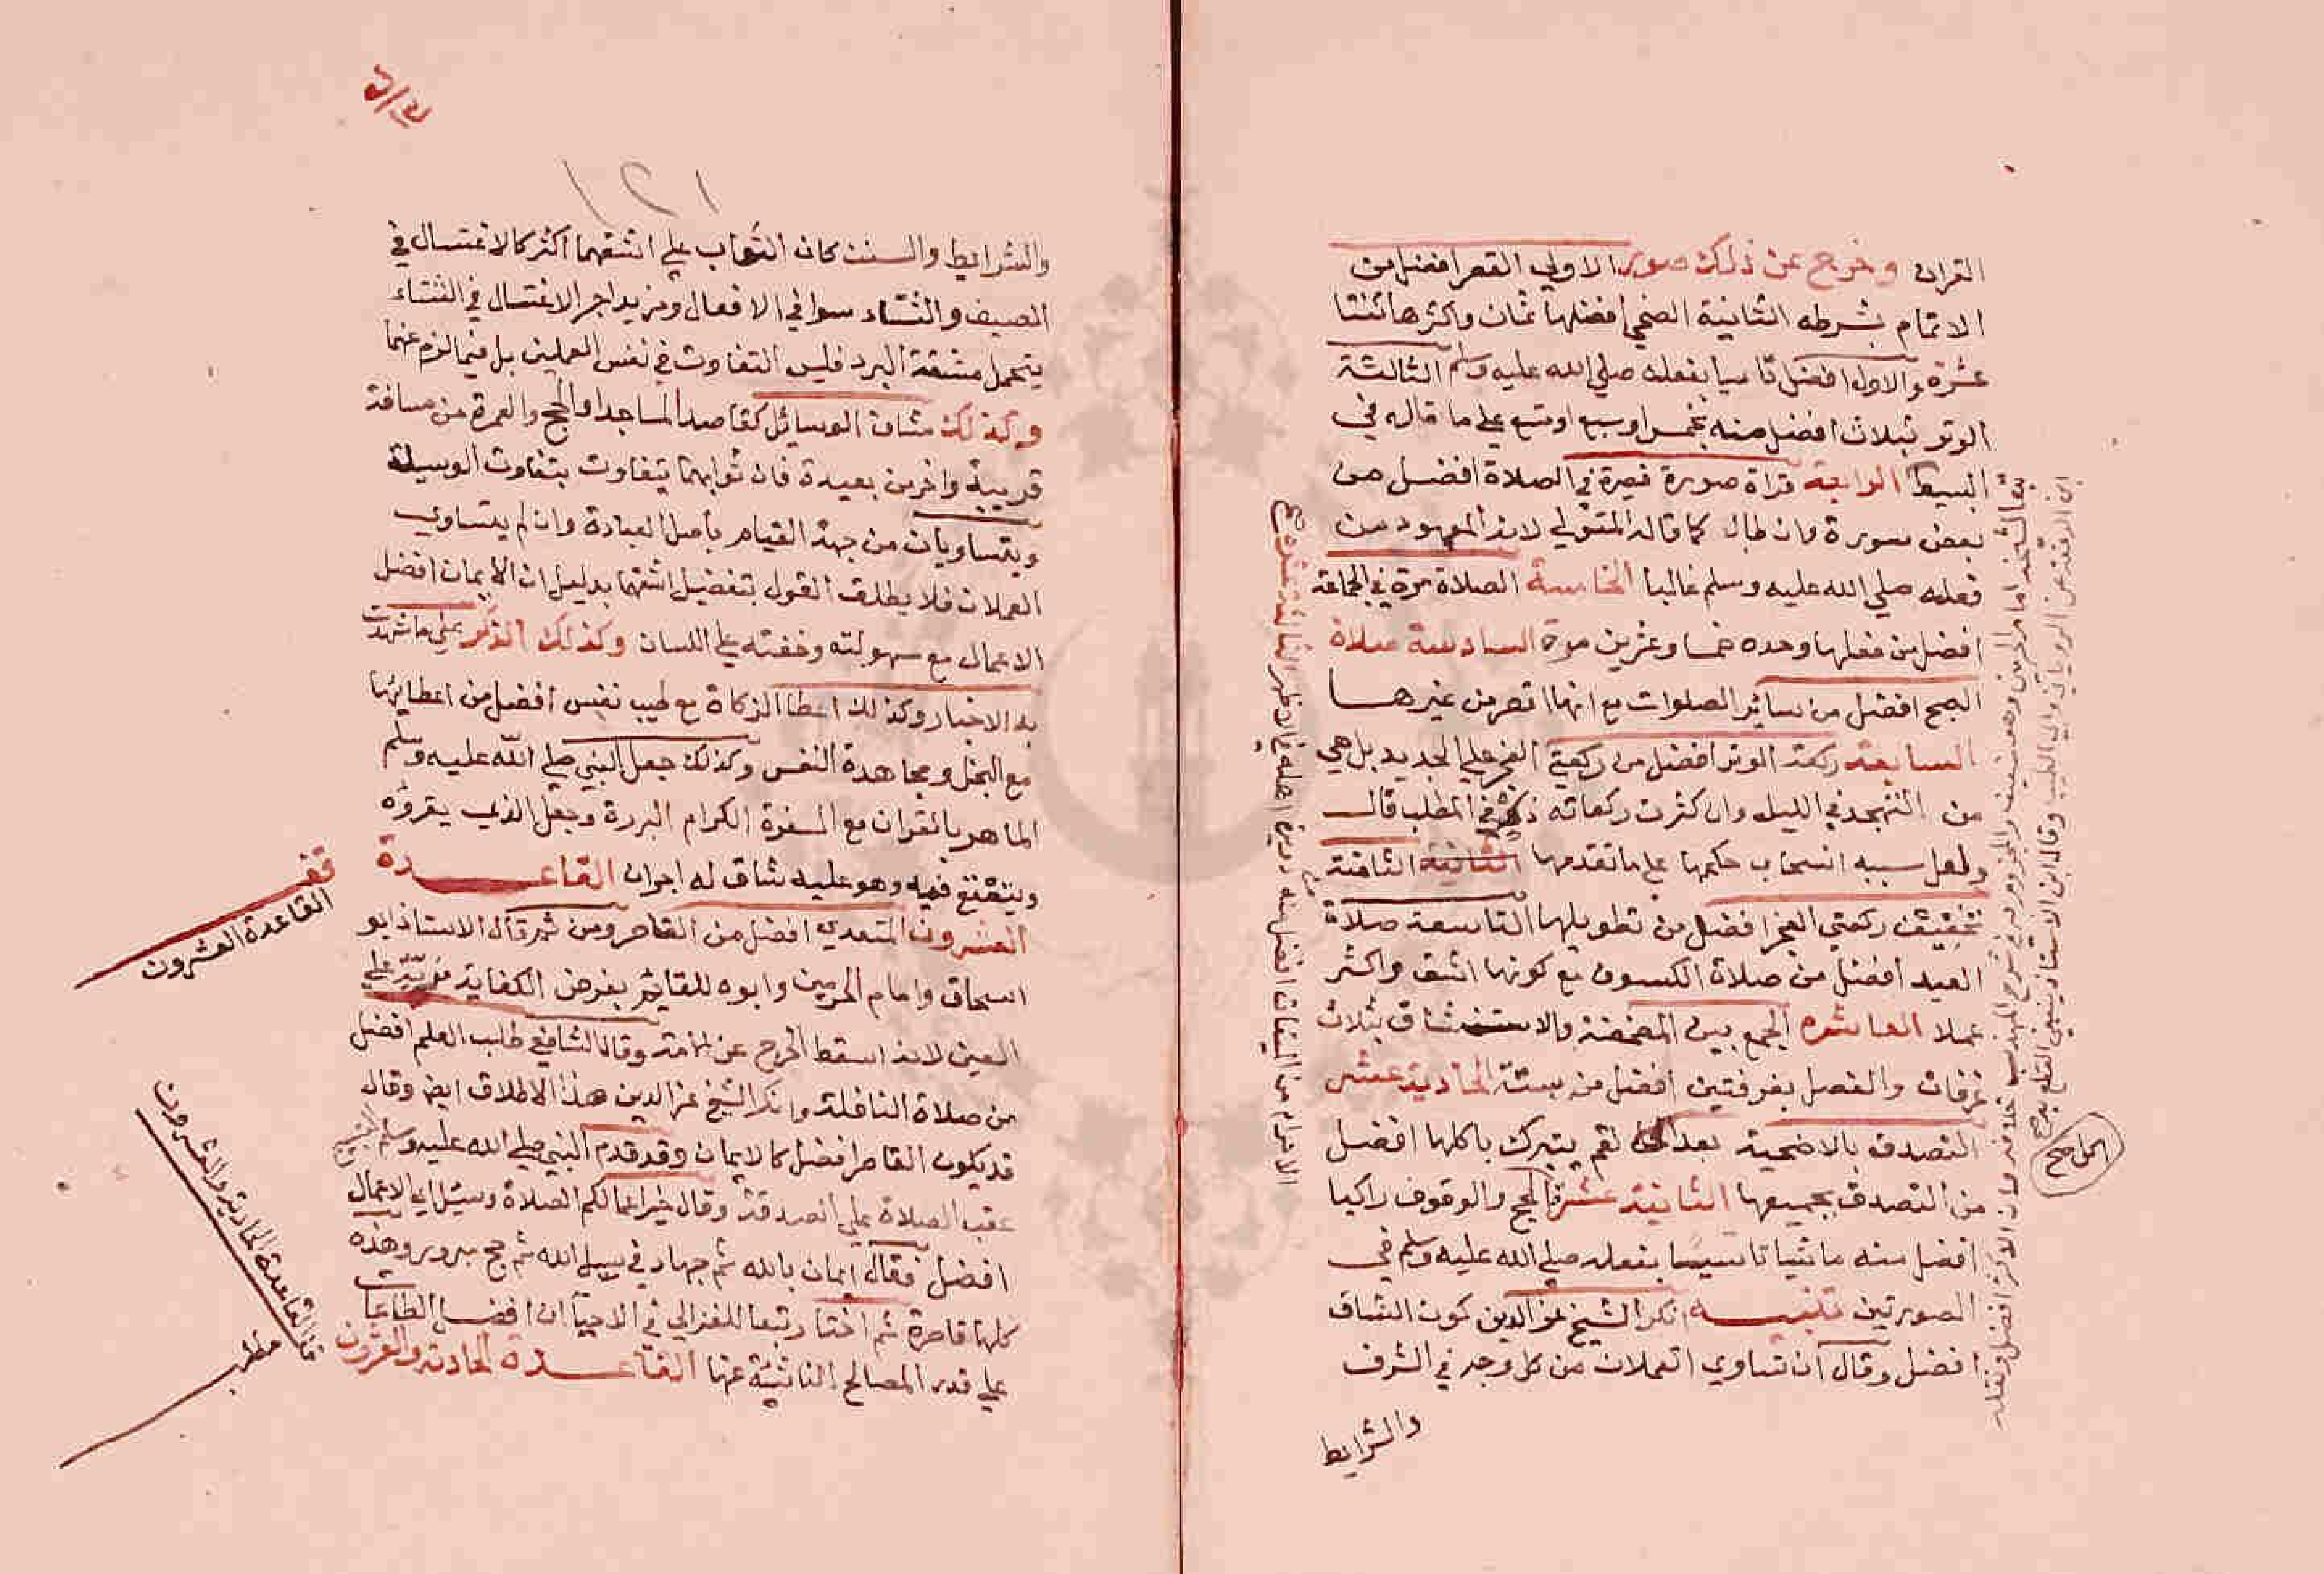 القران وخرج عن ذلك صور الاولي القصر افضل من
الاتمام بشرطه الثانية الضحي افضلها ثمان واكثرها ثنتا
عشرة والاول افضل تاسيا بفعله صلي الله عليه وسلم الثالثة
الوتر بثلاث افضل منه بخمس او سبع او تسع علي ما قاله في
البسيط الرابعة قراة سورة قصيرة في الصلاة افضل من
بعض سورة وان طال كما قاله المتولي لانه المعهود من
فعله صلي الله عليه وسلم غالبا الخامسة الصلاة مرة في الجماعة
افضل من فعلها وحده خمسا وعشرين مرة السادسة صلاة
الصبح افضل من سائر الصلوات مع انها اقصر من غيرها
السابعة ركعة الوتر افضل من ركعتي الفجر علي الجديد بل هي
من التهجد في الليل وان كثرت ركعاته ذكره في المطلب قال
ولعل سببه انسحاب حكمها علي ما تقدمها الثامنة
تخفيف ركعتي الفجر افضل من تطويلها التاسعة صلاة
العيد افضل من صلاة الكسوف مع كونها اشق واكثر
عملا العاشرة الجمع بين المضمضة والاستنشاق بثلاث
غرفات والفصل بغرفتين افضل من بستة الحادية عشر
التصدق بالاضحية بعد لقم يتبرك باكلها افضل
من التصدق بجميعها الثانية عشرة الحج والوقوف راكبا
افضل منه ماشيا تاسيا بفعله صلي الله عليه وسلم في
الصورتين تنبيه انكر الشيخ عز الدين كون الشاق
افضل وقال ان تساوي العملان من كل وجه في الشرف
والشرايط
الاحرام من الميقات افضل منه
اكمل صح
١٢١
والشرايط والسنن كان الثواب علي اشقهما اكثر كالاغتسال في
الصيف والشتاء سوا في الافعال ومزيد اجر الاغتسال في الشتاء
يتحمل مشقة البرد فليس التفاوت في نفس العملين بل فيما لزم عنهما
وكذلك مشاق الوسائل كقاصد المساجد او الحج والعمرة من مسافة
قريبة واخر من بعيدة فان ثوابهما يتفاوت بتفاوت الوسيلة
ويتساويان من جهة القيام باصل العبادة وان لم يتساوي
العملان فلا يطلق القول بتفضيل اشقهما بدليل ان الايمان افضل
الاعمال مع سهولته وخفته علي اللسان وكذلك الذكر علي ما شهدت
به الاخبار وكذلك اعطا الزكاة مع طيب نفس افضل من اعطائها
مع البخل ومجاهدة النفس وكذلك جعل النبي صلي الله عليه وسلم
الماهر بالقران مع السفرة الكرام البررة وجعل الذي يقروه
ويتعتع فيه وهو عليه شاق له اجران القاعدة
العشرون المتعدي افضل من القاصر ومن ثم قال الاستاذ ابو
اسحاق وامام الحرمين وابوه للقائم بفرض الكفاية مزية علي
العين لانه اسقط الحرج عن الامة وقال الشافعي طلب العلم افضل
من صلاة النافلة وانكر الشيخ عز الدين هذا الاطلاق ايضا وقال
قد يكون القاصر افضل كالايمان وقد قدم النبي صلي الله عليه وسلم
عقب الصلاة علي الصدقة وقال خير اعمالكم الصلاة وسئل اي الاعمال
افضل فقال ايمان بالله ثم جهاد في سبيل الله ثم حج مبرور وهذه
كلها قاصرة ثم اختار تبعا للغزالي في الاحيا ان افضل الطاعات
علي قدر المصالح الناشئة عنها القاعدة الحادية والعشرون
قف
القاعدة العشرون
قف القاعدة الحادية والعشرون
مطلب